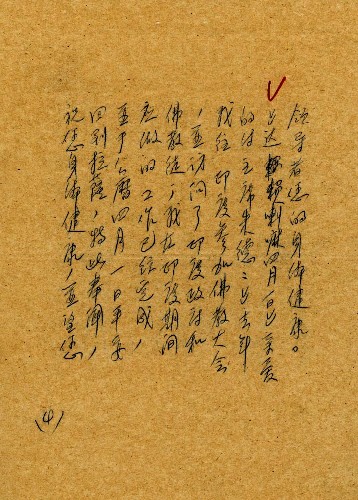 领导者您的身体健康。
达赖喇嘛四月一日亲爱
的付主席朱德：去年
我往印度参加佛教大会
，并访问了印度政府和
佛教徒，我在印度期间
应做的工作已经完成，
并于公历四月一日平安
回到拉萨，特此奉闻，
祝您身体健康，并望您
(4)